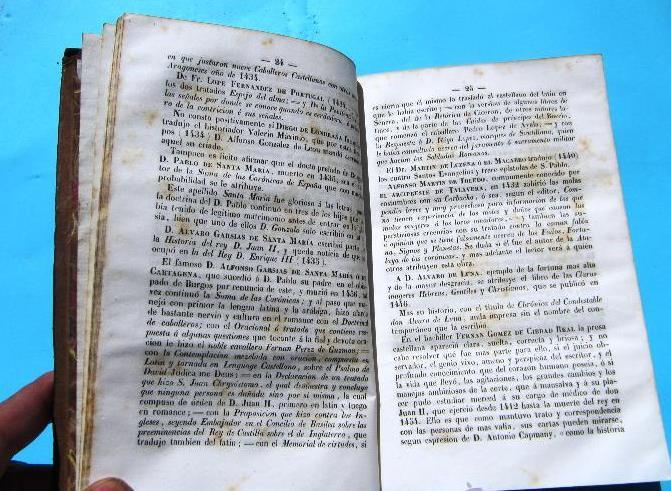 — 24 —
en que justaron nueve Caballeros Castellanos con
Aragoneses año de 1434.
De Fr. LOPE FERNANDEZ DE PORTUGAL (1434,
los dos tratados Espejo del alma; — y De la
las señales por donde se conoce quando es verdadera,
ro de la contricion é sus señales.
No consta positivamente si DIEGO DE
tradujo el historiador Valerio Máximo, que por
pos (1434) D. Alfonso Gonzalez de Leon mandó
aquel su criado.
Tampoco es lícito afirmar que el docto prelado de
D. PABLO DE SANTA MARIA, muerto en 1435, sea
tor de la Suma de las Corónicas de España que con
probabilidad se le atribuye.
Este apellido Santa Maria fue glorioso á las letras,
la doctrina del D. Pablo continuó en tres de los hijos que
bia tenido de legítimo matrimonio antes de entrar en
sia, bien que uno de ellos D. Gonzalo solo escribió en
D. ALVARO GARSIAS DE SANTA MARIA escribió
la Historia del rey D. Juan II, y queda noticia de que
ocupó en la del Rey D. Enrique III (1435).
El famoso D. ALFONSO GARSIAS DE SANTA MARIA Ó DE
CARTAGENA, que sucedió á D. Pablo su padre en el
pado de Burgos por renuncia de este, y murió en 1456,
vez continuó la Suma de las Corónicas; y al paso que
nejó con primor la lengua latina y la arábiga, hizo
de bastante nervio y cultura en el romance con el Doctrinal
de caballeros; con el Oracional ó tratado que contiene
puesta á algunas questiones que tocante á la fiel y devota
cion le hizo el noble escudero Fernan Perez de Guzman; —
con la Contemplacion mezclada con oracion, compuesta en
Latin y tornada en Lenguage Castellano, sobre el Psalmo de
David Júdica me Deus; — en la Declaracion de un tratado
que hizo S. Juan Chrysóstomo, el qual demuestra y
que ninguna persona es dañada sino por sí misma, la cual
compuso de órden de D. Juan II, primero en latin y luego
en romance; — con la Proposicion que hizo contra los In-
gleses, seyendo Embajador en el Concilio de Basilea sobre las
preeminencias del Rey de Castilla sobre el de Inglaterra, que
tradujo tambien del latin; — con el Memorial de virtudes, si
— 25 —
es cierto que él mismo lo trasladó al castellano del latin en
que le habia escrito; — con la version de algunos libros de
Séneca, del de la Retórica de Ciceron, de otros autores la-
tinos, y de la parte de las Caidas de príncipes del Bocacio,
que comenzó el canciller Pedro Lopez de Ayala; — y con
la Respuesta á D. Iñigo Lopez, marqués de Santillana, quien
le habia consultado acerca del juramento ó sacramento militar
que hacian los Soldados Romanos.
El DR. MARTIN DE LUCENA Ó EL MACABEO tradujo (1440)
los cuatro Santos Evangelios y trece epístolas de S. Pablo.
ALFONSO MARTIN DE TOLEDO, comunmente conocido por
EL ARCIPRESTE DE TALAVERA, en 1432 zahirió las malas
costumbres con su Corbacho, ó sea, segun el editor, Com-
pendio breve y muy provechoso para informacion de los que
no tienen experiencia del mal y daños que causan las
malas mugeres á los locos amadores, — y tambien las su-
persticiosas creencias con su tratado contra la comun fabla
ú opinion que se tiene falsamente acerca de los Fados, Fortu-
na, Signos y Planetas. Se duda si él fue el autor de la Ata-
laya de las corónicas, y mas adelante el lector verá á quien
otros atribuyen esta obra.
A D. ALVARO DE LUNA, ejemplo de la fortuna mas alta
y de la mayor desgracia, se atribuye el libro de las Claras
mugeres Hebreas, Gentiles y Christianas, que se publicó en
1440.
Mas su historia, con el título de Chrónica del Condestable
don Alvaro de Luna, anda impresa sin el nombre del con-
temporáneo que la escribió.
En el bachiller FERNAN GOMEZ DE CIBDAD REAL la prosa
castellana apareció clara, suelta, correcta y briosa; y no
cabe resolver qué fue mas parte para ello, si el juicio ob-
servador, el genio vivo, ameno y perspicaz del escritor, y el
profundo conocimiento que del corazon humano poseia, ó si
la vida que llevó, las agitaciones, los grandes cambios y los
manejos ambiciosos de la corte, que á mansalva y á su pla-
cer pudo estudiar merced á su cargo de médico de don
Juan II, que ejerció desde 1412 hasta la muerte del rey en
1454. Ello es que como mantuvo trato y correspondencia
con las personas de mas valia, sus cartas pueden mirarse,
segun espresion de D. Antonio Capmany, «como la historia